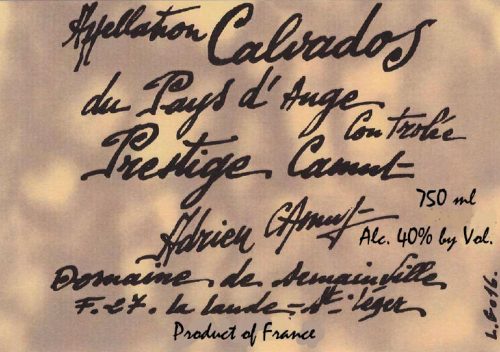 Appellation Calvados
du Pays d'Auge
Controlée
Prestige Camut
750 ml
Adrien Camut
Alc. 40% by Vol.
Domaine de Semainville
F. 27. La Lande - St. Léger
Product of France